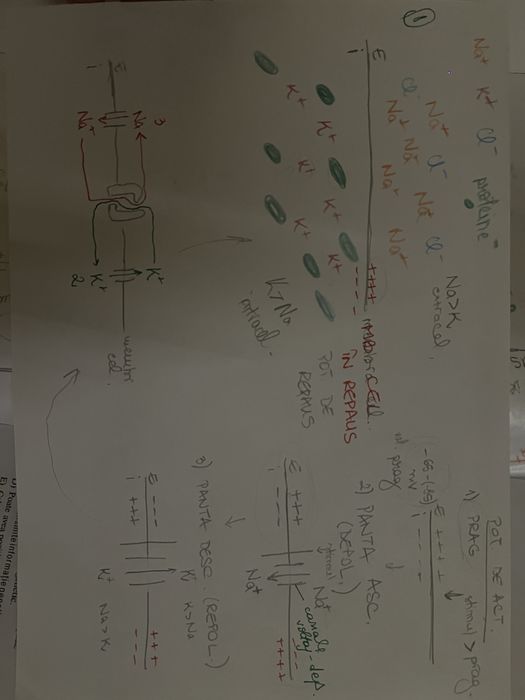 ①
Na⁺ K⁺ Cl⁻ proteine⁻
Na>K
extracel.
Na⁺ Cl⁻ Na⁺ Cl⁻
Cl⁻ Na⁺ Na⁺ Na⁺ Na⁺
E
i
++++
----
ÎN REPAUS
K⁺ K⁺ K⁺ K⁺
K⁺ K⁺ K⁺
K>Na
intracel.
POT DE
REPAUS
E
i
3 Na⁺
Na⁺
K⁺
2 K⁺
membr
cel.
POT DE ACT.
1) PRAG stimul > prag.
E ++++
i ----
mV
prag
2) PANTA ASC.
(DEPOL.)
E +++
i ---
Na⁺
Na⁺
canale
voltaj-dep.
----
++++
3) PANTA DESC. (REPOL.)
E ---
i +++
K⁺ K>Na
K⁺ Na>K
+++
---